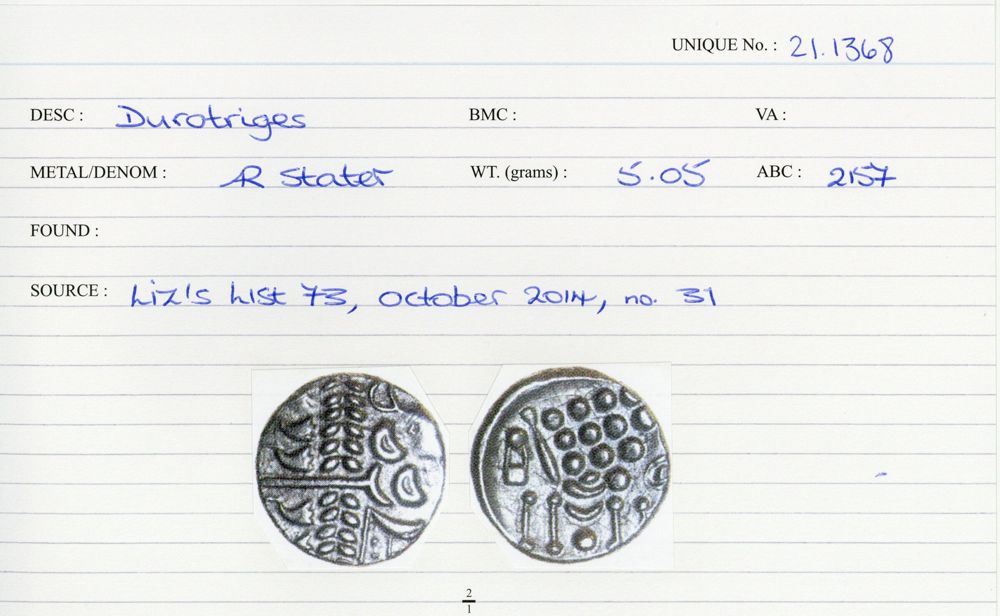 UNIQUE No. : 21.1368
DESC : Durotriges BMC : VA :
METAL/DENOM : AR Stater WT. (grams) : 5.05 ABC : 2157
FOUND :
SOURCE : Liz's List 73, October 2014, no. 31
2
1